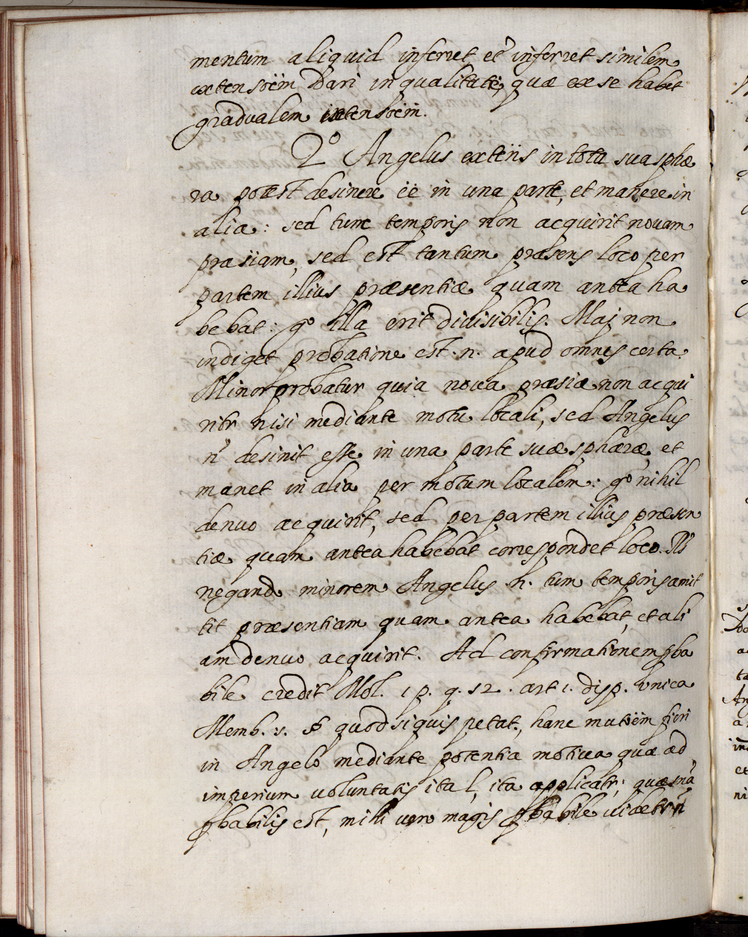 mentum aliquid inferret et inferret similem
extensoẽm dari in qualitate, quæ ex se habet
gradualem extensoẽm.
2.º Angelus extẽns in tota sua sphæ
ra potest desinere ẽe in una parte, et manere in
alia: sed tunc temporis non acquirit novam
præsiam, sed est tantum præsens loco per
partem illius præsentiæ quam antea ha
bebat: gº illa erit divisibilis. Maj non
indiget probatione est .n. apud omnes certa.
Minor probatur quia nova præsia non acqui
ritr nisi mediante motu locali, sed Angelus
nº desinit esse in una parte suæ sphæræ, et
manet in alia per motum localem: gº nihil
denuo acquirit, sed per partem illius præsen
tiæ quam antea habebat correspondet loco.
negand. minorem Angelus n. tum temporis amit
tit præsentiam quam antea habebat, et ali
am denuo acquirit. Ad confirmationem pba
bile credit Mol. 1 p. q. 52. art 1. disp. unica
Memb. quod siquis petat, hanc mutoẽm fieri
in Angelo mediante potentia motiva quæ ad
imperium voluntatis ita l, ita applicatr; quæ snã
pbabilis est, mihi vero magis pbabile videtr